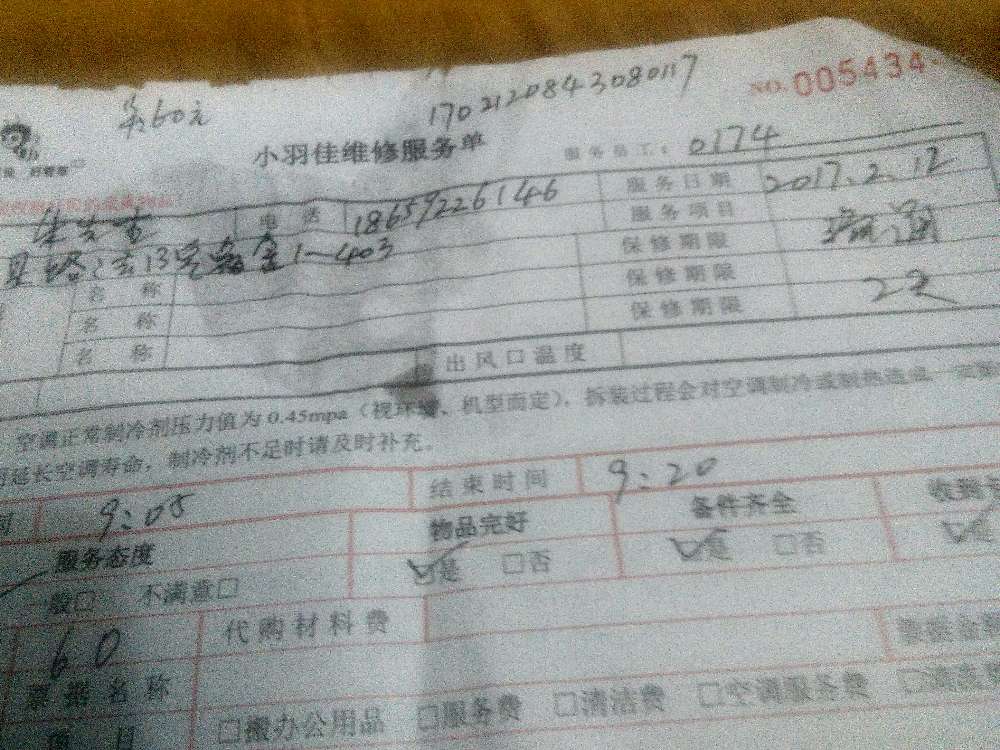 60元 1702120843080117 NO.005434
小羽佳维修服务单 服务员工:0174
电话 18659226146 服务日期 2017.2.12
1-403 服务项目
名称 保修期限
名称 保修期限 2天
名称 保修期限
出风口温度
空调正常制冷剂压力值为0.45mpa(视环境、机型而定),拆装过程会对空调制冷或制热造成
延长空调寿命,制冷剂不足时请及时补充。
9:05 结束时间 9:20
服务态度 物品完好 备件齐全 收到
般□ 不满意□ ☑是 □否 ☑是 □否 ☑是
60 代购材料费 票据金
票据名称
项目 □搬办公用品 □服务费 □清洁费 □空调服务费